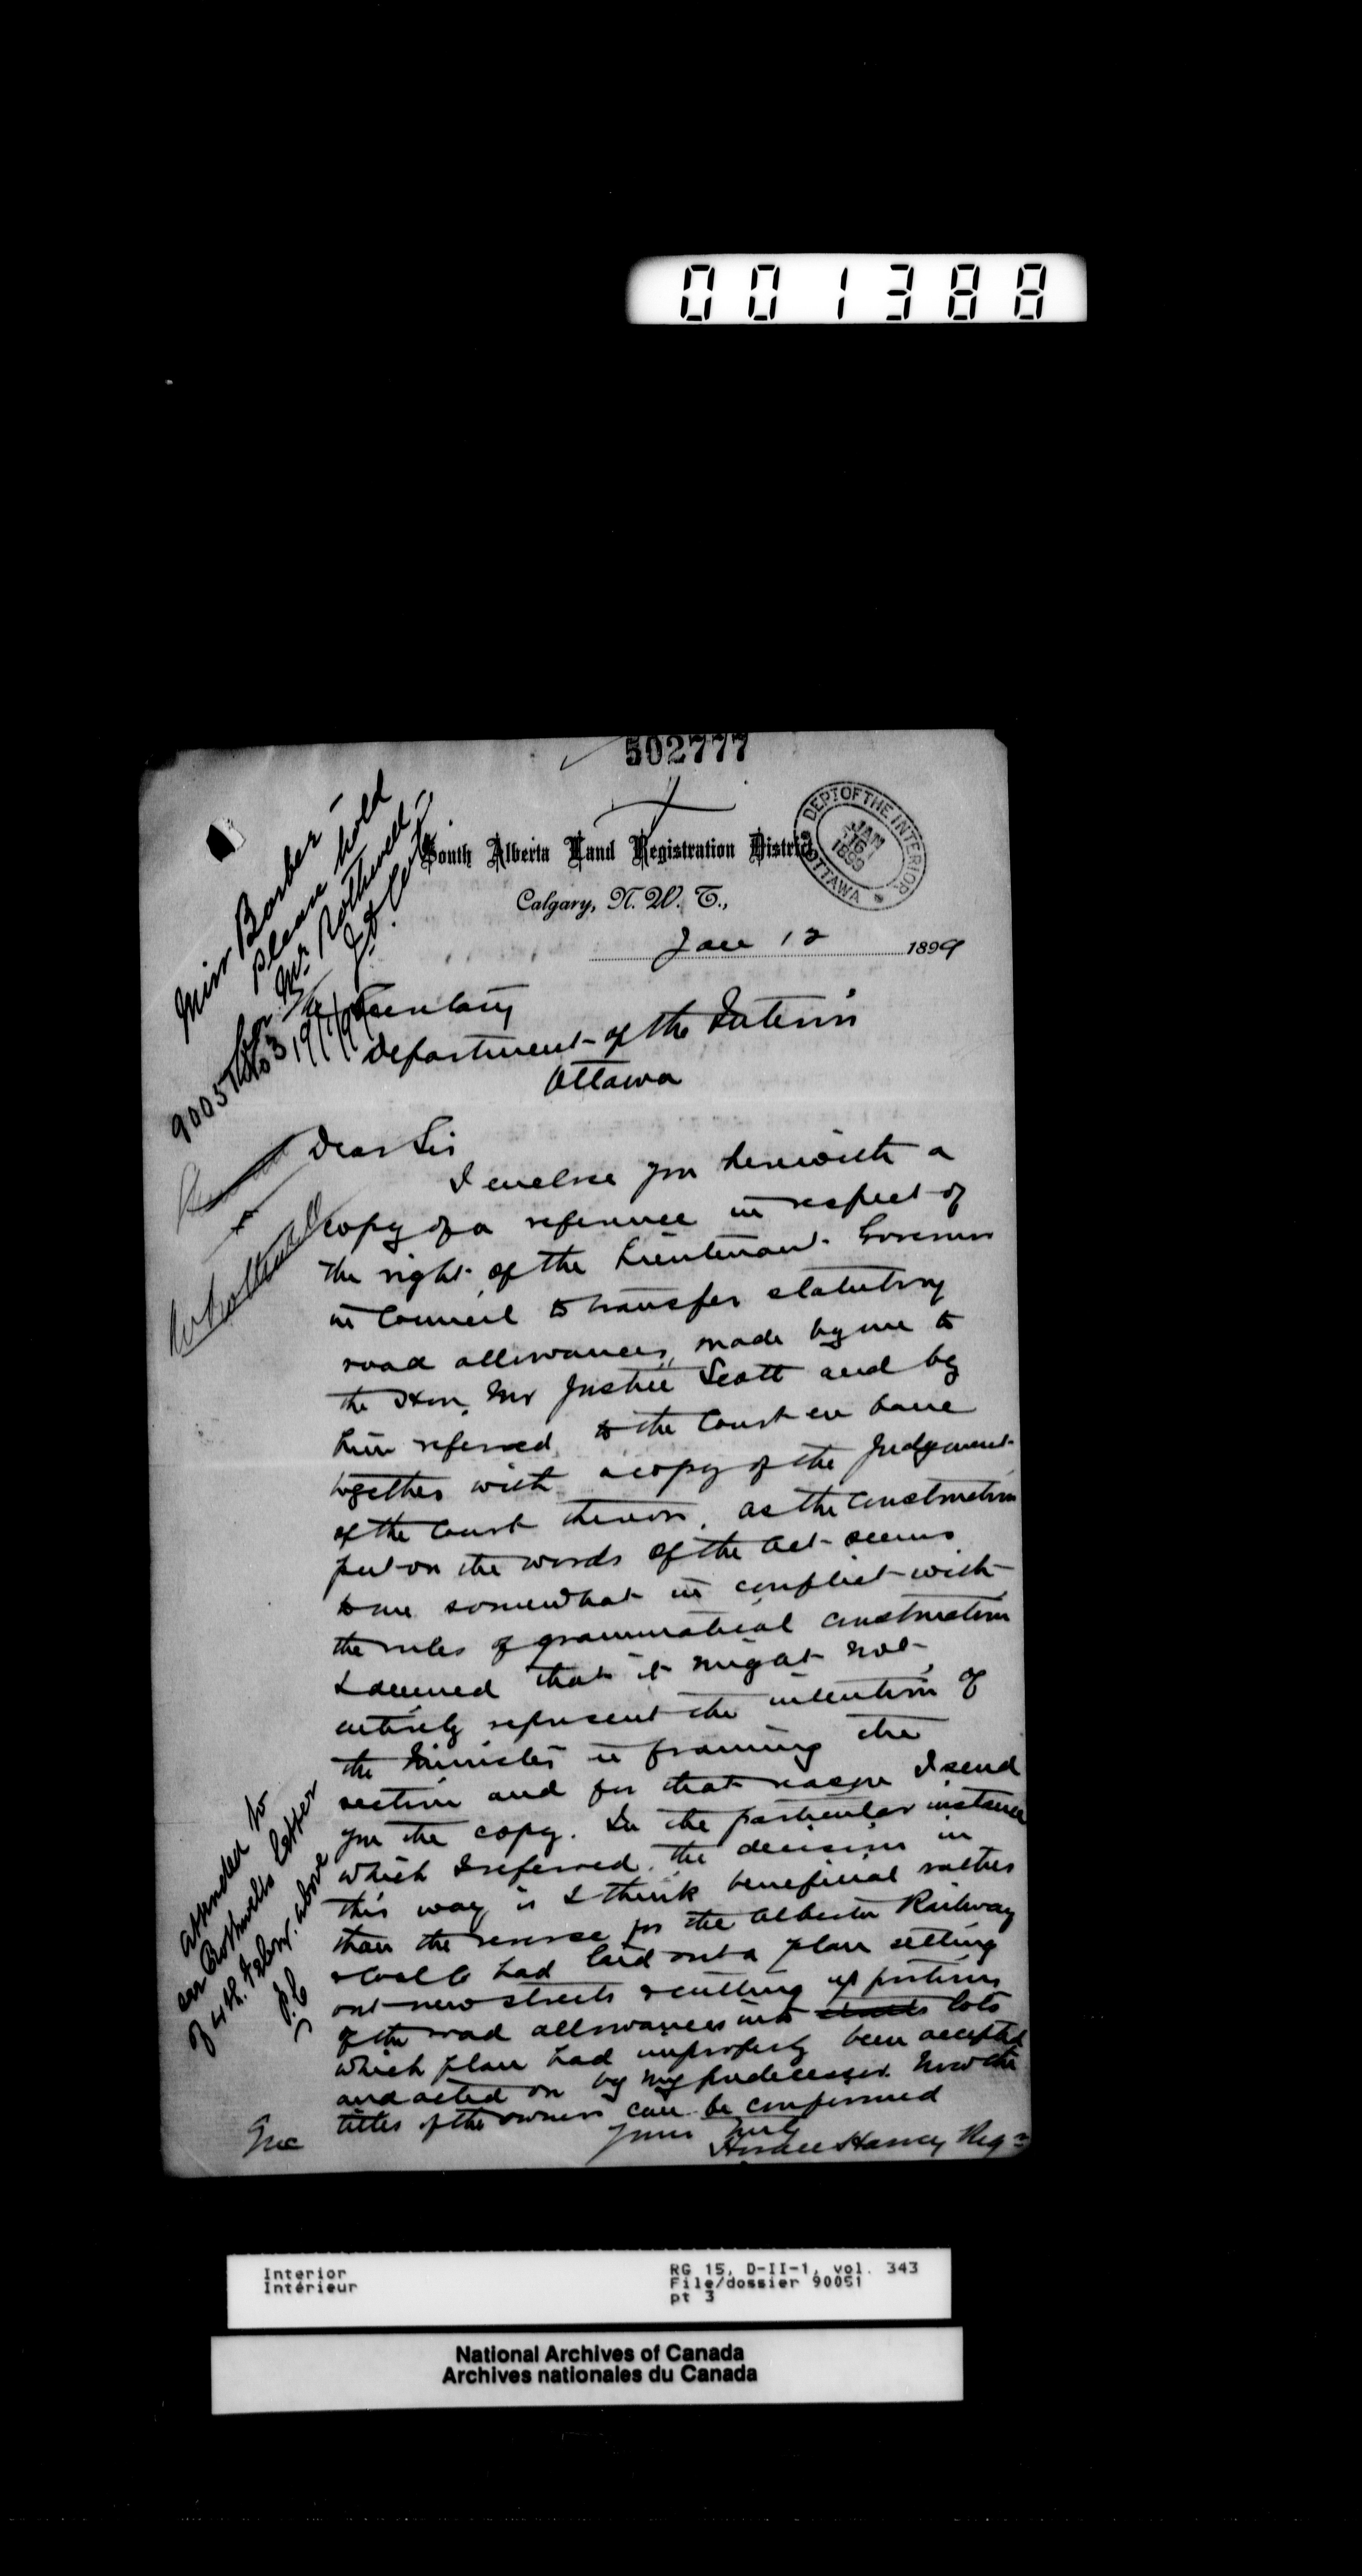 001388
502777
DEPT OF THE INTERIOR
JAN 16 1899
OTTAWA
South Alberta Land Registration District
Calgary, N. W. T.,
Jan 12 1899
Miss Barber –
please hold
for Mr Rothwell –
90051 No 3 19/1/99
The Secretary
Department of the Interior
Ottawa
Dear Sir
I enclose you herewith a
copy of a reference in respect of
the right of the Lieutenant Governor
in Council to transfer statutory
road allowances, made by me to
the Hon. Mr Justice Scott and by
him referred to the Court en banc
together with a copy of the Judgment
of the Court thereon, as the construction
put on the words of the Act seems
to me somewhat in conflict with
the rules of grammatical construction
I deemed that it might not
entirely represent the intention of
the Minister in framing the
section and for that reason I send
you the copy. In the particular instance
which I referred, the decision in
this way is I think beneficial rather
than the reverse for the Alberta Railway
& Coal Co had laid out a plan setting
out new streets & cutting up portions
of the road allowances into streets lots
which plan had improperly been accepted
and acted on by my predecessor. Now the
titles of the owners can be confirmed
Yours truly
Horace Harvey Reg r
Enc
Attended to
see Rothwells letter
of 4th. Febry. above
P.C
Interior
Intérieur
RG 15, D-II-1, vol. 343
File/dossier 90051
pt 3
National Archives of Canada
Archives nationales du Canada